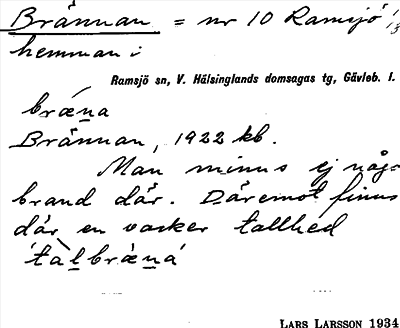 Brännan = nr 10 Ramsjö 1/13
hemman i
Ramsjö sn, V. Hälsinglands domsagas tg, Gävleb. l.
bræ̀na
Brännan, 1922 kb.
Man minns ej någ.
brand där. Däremot finns
där en vacker tallhed
tàlbræ̀ná
LARS LARSSON 1934